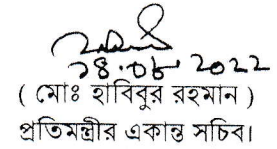 ১৪.০৮.2022
( মোঃ হাবিবুর রহমান )
প্রতিমন্ত্রীর একান্ত সচিব।